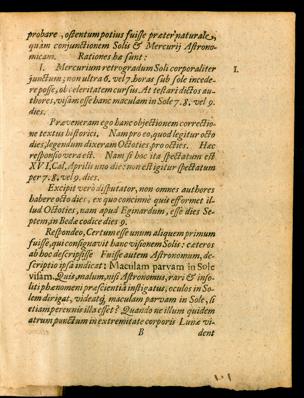 probare, ostentum potius fuisse præter naturale,
quàm conjunctionem Solis & Mercurij Astrono-
micam. Rationes hæ sunt:
I. Mercurium retrogradum Soli corporaliter I.
junctum; non ultra 6. vel 7. horas sub sole incede-
re posse, ob celeritatem cursus. At testari dictos au-
thores, visam esse hanc maculam in Sole 7. 8. vel 9.
dies.
Præveneram ego hanc objectionem correctio-
ne textus historici. Nam pro eo, quod legitur octo
dies, legendum dixeram Octoties, pro octies. Hæc
responsio vera est. Nam si hoc ita spectatum est
XVI, Cal. Aprilis uno die: non est igitur spectatum
per 7. 8. vel 9. dies.
Excipit verò disputator, non omnes authores
habere octo dies, ex quo concinnè quis efformet il-
lud Octoties, nam apud Eginardum, esse dies Se-
ptem, in Bedæ codice dies 9.
Respondeo, Certum esse unum aliquem primum
fuisse, qui consignavit hanc visionem Solis: cæteros
ab hoc descripsisse Fuisse autem Astronomum, de-
scriptio ipsa indicat: Maculam parvam in Sole
visam. Quis, malum, nisi Astronomus, rari & inso-
liti phænomeni præscientiâ instigatus, oculos in So-
lem dirigat, videatq́; maculam parvam in Sole, si
etiam perennis illa esset? Quando ne illum quidem
atrum punctum in extremitate corporis Lunæ vi-
B dent